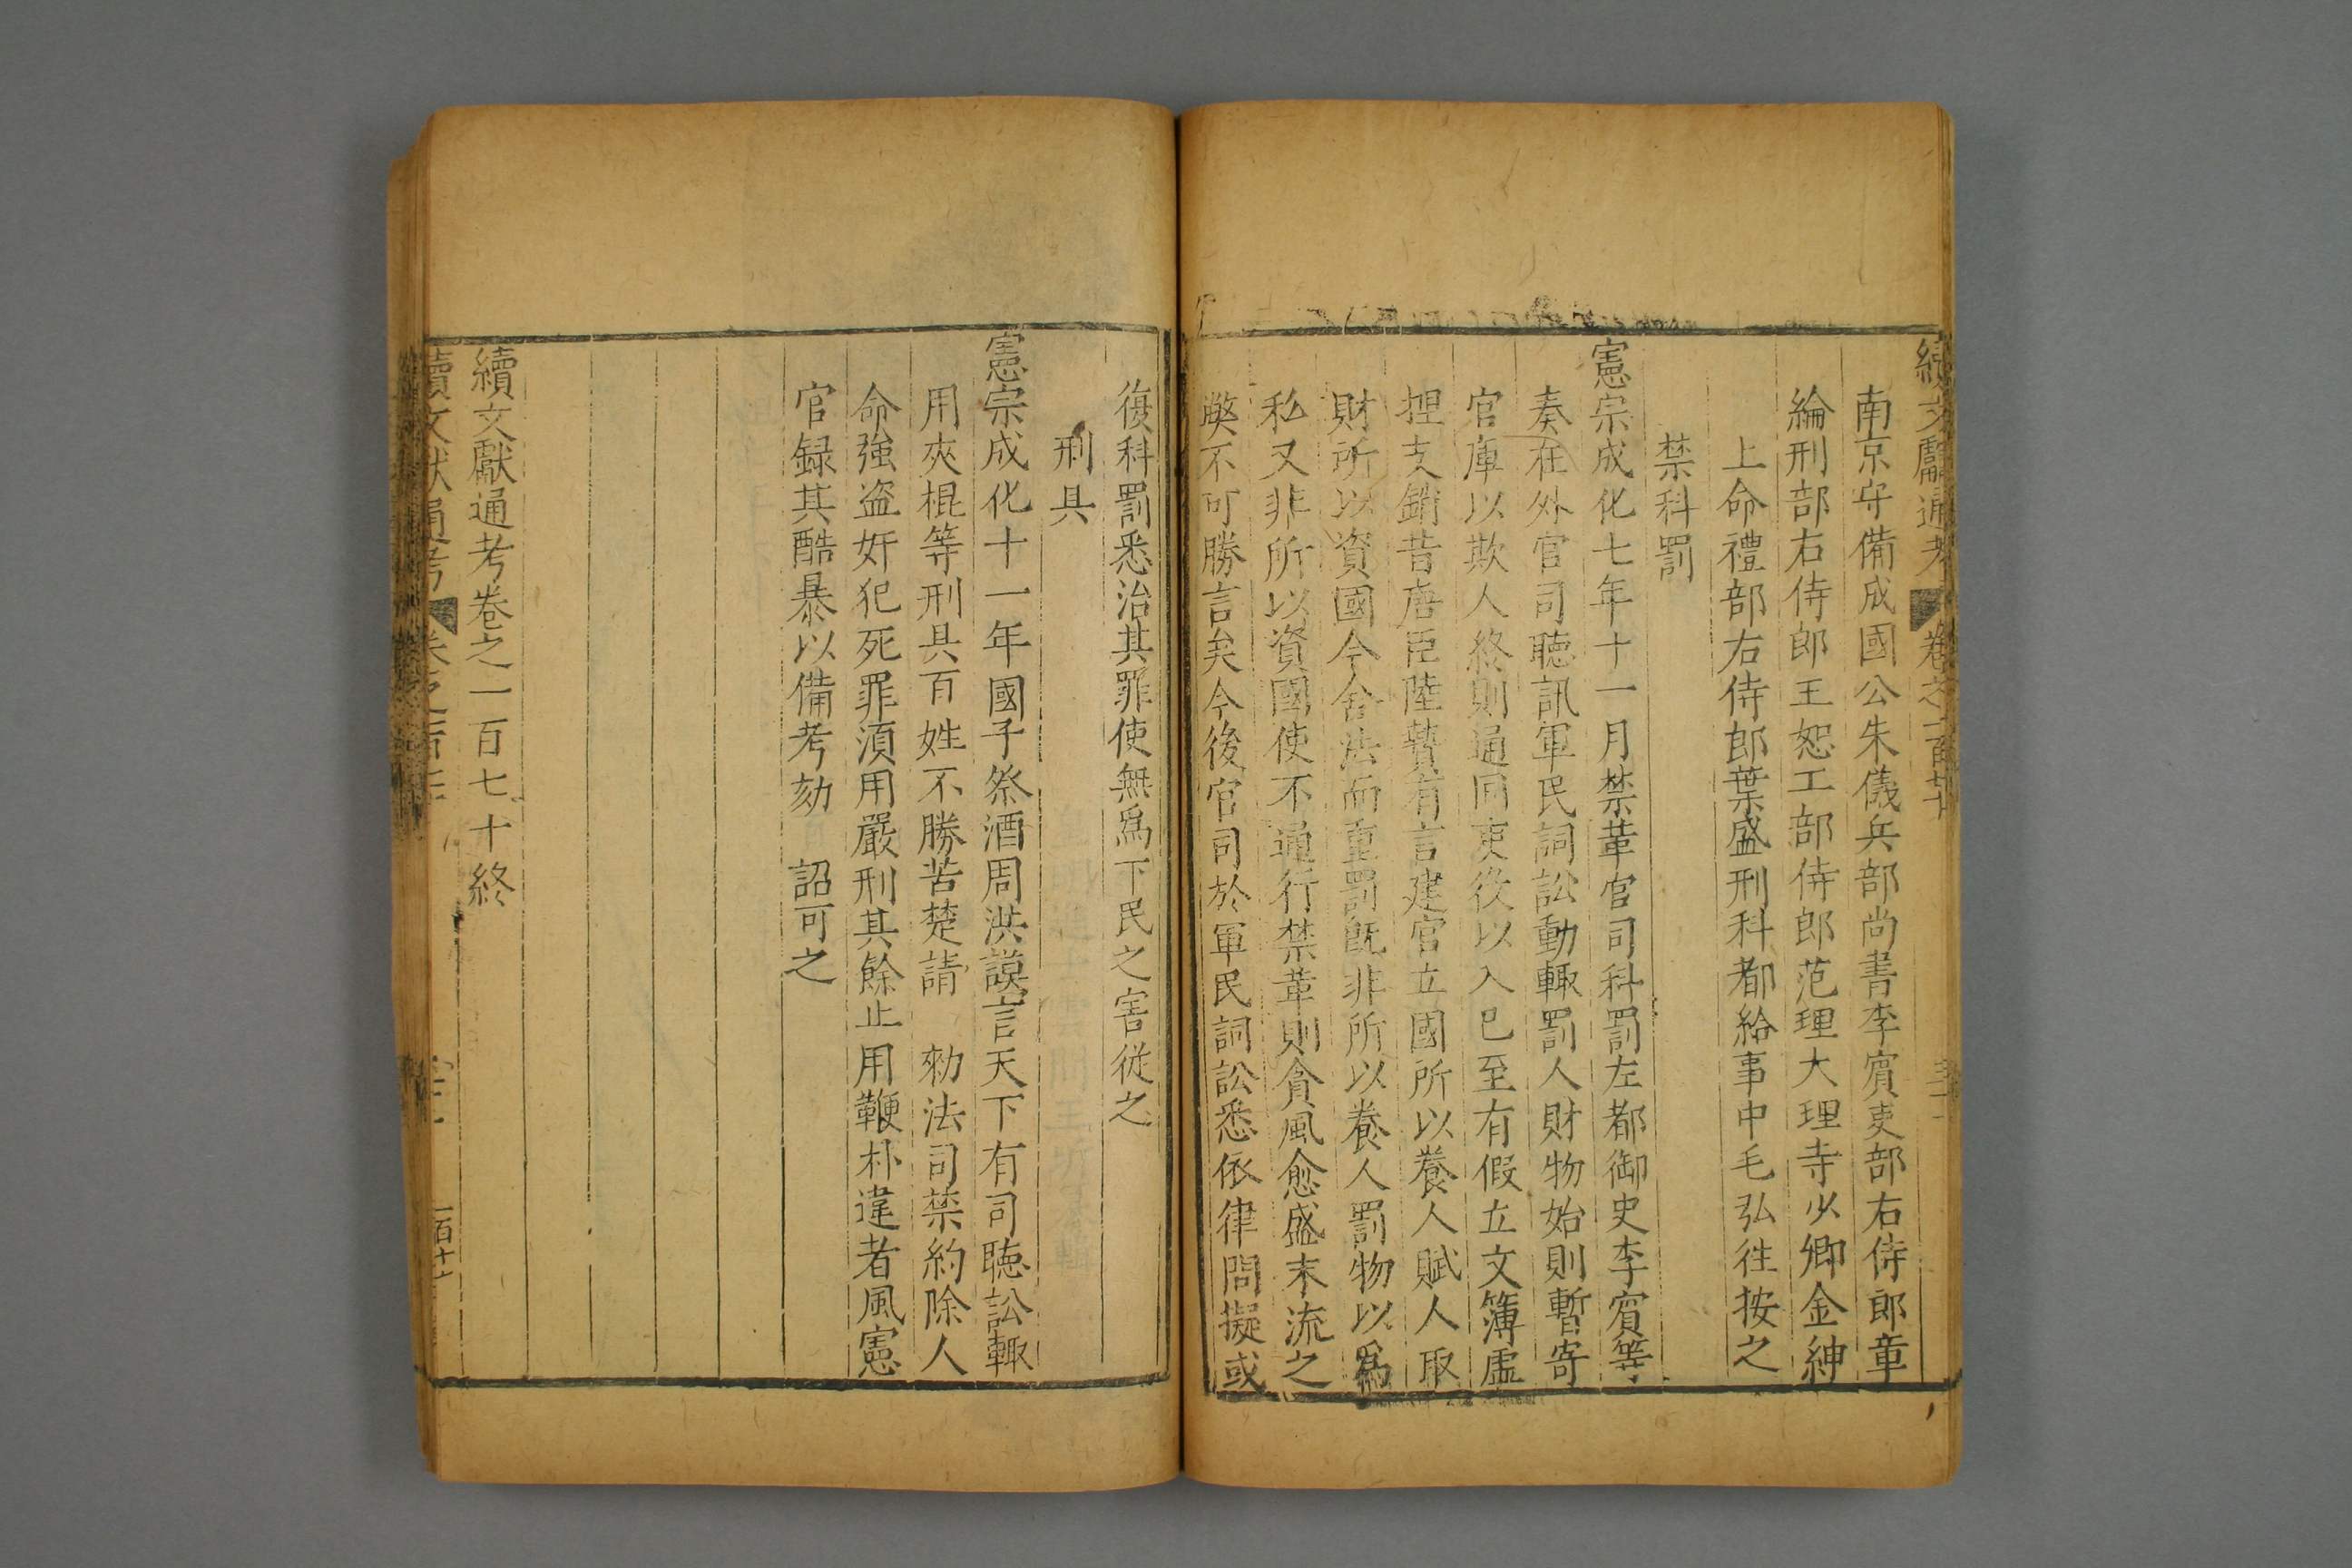 續文獻通考 卷之一百七十
南京守備成國公朱儀兵部尚書李賓吏部右侍郎章
綸刑部右侍郎王恕工部侍郎范理大理寺少卿金紳
上命禮部右侍郎葉盛刑科都給事中毛弘徃按之
禁科罰
憲宗成化七年十一月禁革官司科罰左都御史李賓等
奏在外官司聽訊軍民詞訟動輒罰人財物始則暫寄
官庫以欺人終則通同吏役以入巳至有假立文簿虛
揑支銷昔唐臣陸贄有言建官立國所以養人賦人取
財所以資國今舍法而重罰旣非所以養人罰物以爲
私又非所以資國使不通行禁革則貪風愈盛末流之
獘不可勝言矣今後官司於軍民詞訟悉依律問擬或
復科罰悉治其罪使無爲下民之害從之
刑具
憲宗成化十一年國子祭酒周洪謨言天下有司聽訟輒
用夾棍等刑具百姓不勝苦楚請 勑法司禁約除人
命強盗奸犯死罪湏用嚴刑其餘止用鞭朴違者風憲
官録其酷暴以備考劾 詔可之
續文獻通考卷之一百七十終
續文獻通考